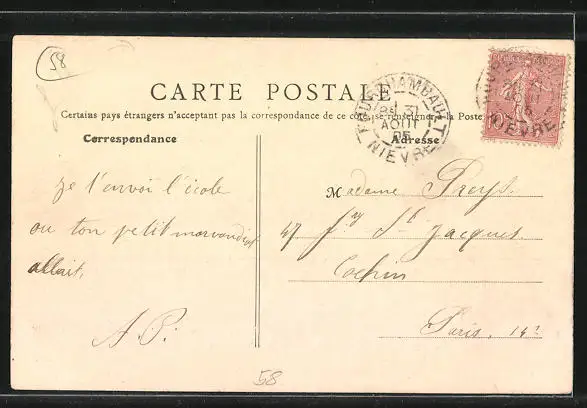 58
CARTE POSTALE
Certains pays étrangers n'acceptent pas la correspondance de ce côté, se renseigner à la Poste
Correspondance
Adresse
FOURCHAMBAULT
31
AOUT
05
NIEVRE
NIEVRE
10
je t'envoi l'école
ou ton petit morvandiot
allait,
A. P.
Madame Preys.
47 fg St Jacques
Cochin
Paris. 14e
58